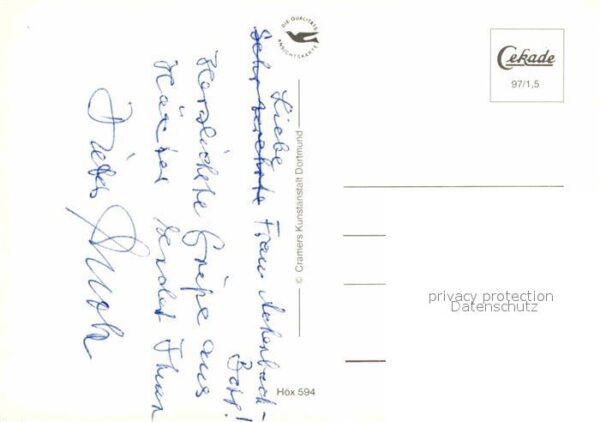 Liebe
Sehr verehrte Frau Achenbach-
Herzlichste Grüße aus
Höxter sendet Ihnen
Dieter
DIE QUALITÄTS
ANSICHTSKARTE
© Cramers Kunstanstalt Dortmund
Höx 594
Cekade
97/1,5
privacy protection
Datenschutz